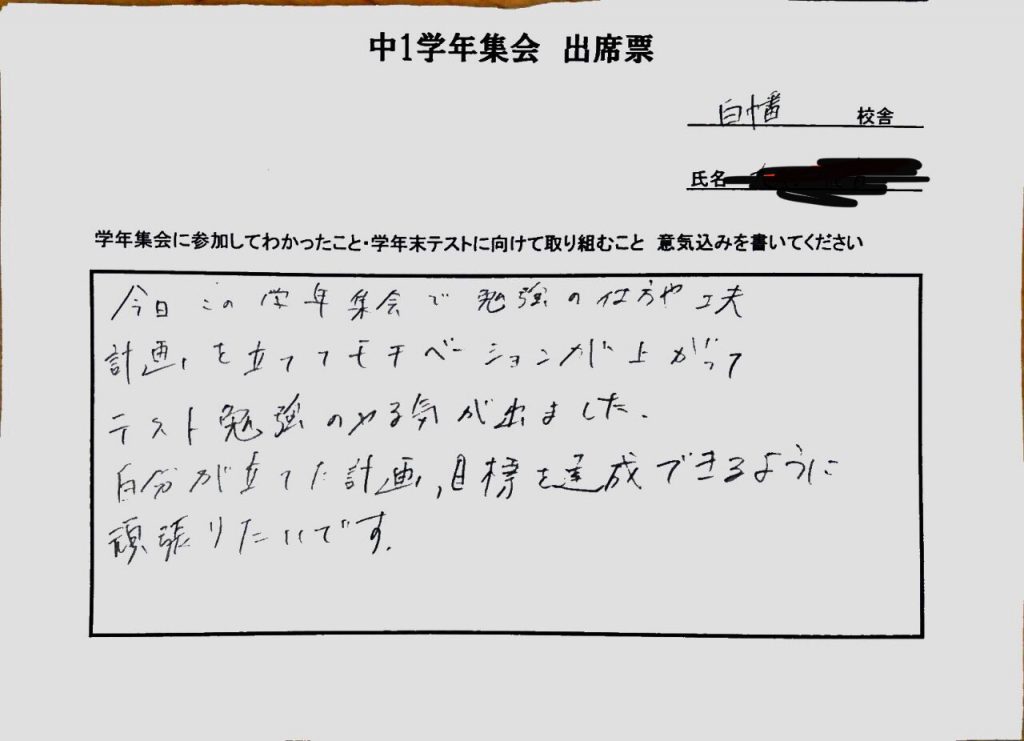 中1学年集会 出席票
白幡 校舎
氏名
学年集会に参加してわかったこと・学年末テストに向けて取り組むこと 意気込みを書いてください
今日この学年集会で勉強の仕方や工夫
計画,を立ててモチベーションが上がって
テスト勉強のやる気が出ました.
自分が立てた計画,目標を達成できるように
頑張りたいです.